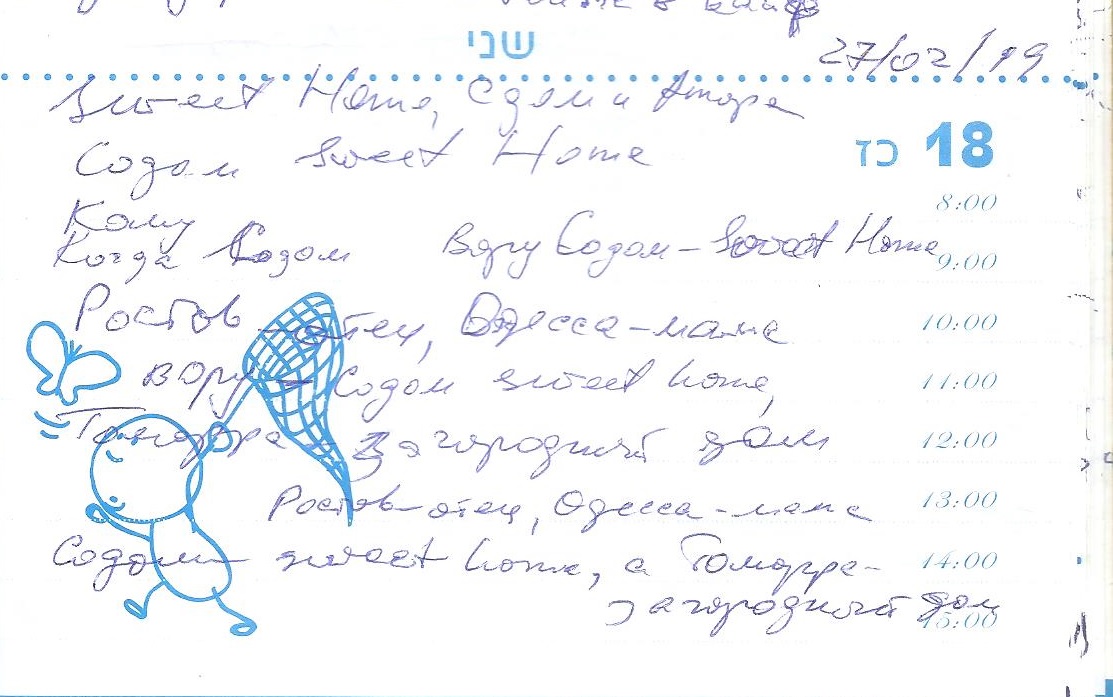 שני
27/02/19
Sweet Home, Содом и
Содом Sweet Home
כז 18
8:00
Кому
Когда Содом Вору Содом - Sweet Home
9:00
Ростов - отец, Одесса - мама
10:00
вору - Содом sweet home,
11:00
Гоморра - загородный дом
12:00
Ростов - отец, Одесса - мама
13:00
Содом - sweet home, а Гоморра -
14:00
загородный дом
15:00